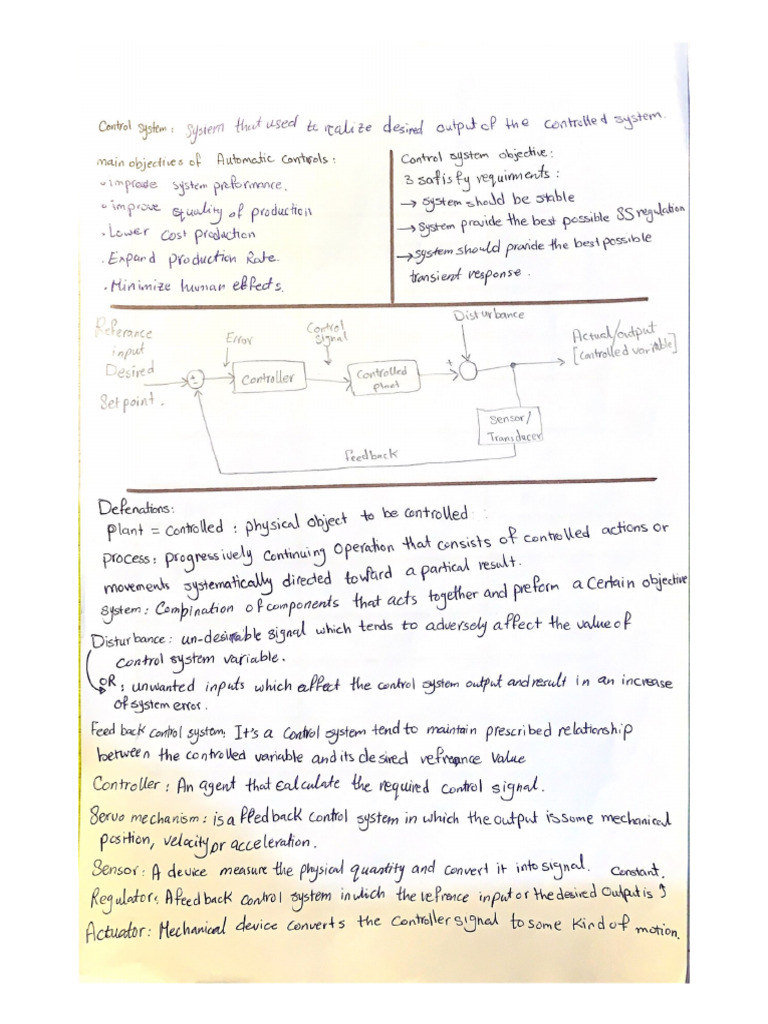 Control System: System that used to realize desired output of the controlled system.
main objectives of Automatic controls:
• improve system preformance.
• improve quality of production
• Lower cost production
• Expand production Rate.
• Minimize human effects.
Control system objective:
3 satisfy requirments:
→ system should be stable
→ system provide the best possible SS regulation
→ system should provide the best possible
transient response.
Referance
input
Desired
Set point.
Error
Control
Signal
Disturbance
Actual/output
[controlled variable]
+
-
Controller
Controlled
plant
+
Sensor/
Transducer
Feedback
Defenations:
plant = controlled : physical object to be controlled
process: progressively continuing operation that consists of controlled actions or
movements systematically directed toward a partical result.
System: Combination of components that acts together and preform a certain objective
Disturbance: un-desirable signal which tends to adversely affect the value of
control system variable.
OR: unwanted inputs which effect the control system output and result in an increase
of system error.
Feed back control system: It's a control system tend to maintain prescribed relationship
between the controlled variable and its desired refrence value
Controller: An agent that calculate the required control signal.
Servo mechanism: is a feed back control system in which the output is some mechanical
position, velocity or acceleration.
Sensor: A device measure the physical quantity and convert it into signal.
Regulator: A feed back control system in wich the refrence input or the desired output is constant.
Actuator: Mechanical device converts the controller signal to some kind of motion.